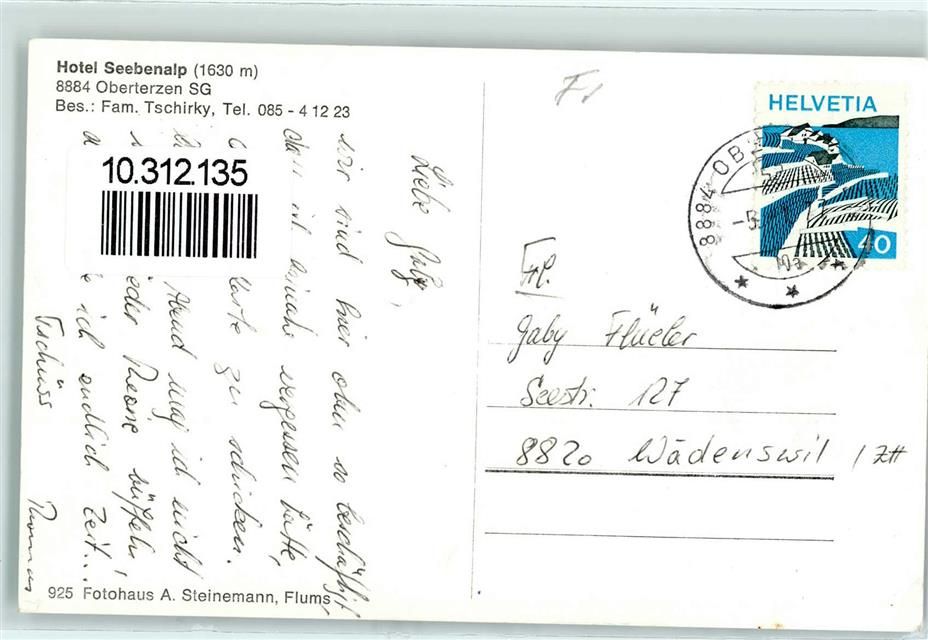 Hotel Seebenalp (1630 m)
8884 Oberterzen SG
Bes.: Fam. Tschirky, Tel. 085 - 4 12 23
10.312.135
Liebe Gaby,
wir sind hier oben so beschäftigt
dass ich beinahe vergessen hätte,
Karte zu schicken.
Abend mag ich nicht
Theorie büffeln!
ich endlich Zeit...
Tschüss
Thomas
925 Fotohaus A. Steinemann, Flums
Fr
HELVETIA
40
8884 OB
-5.
Frl.
Gaby Flüeler
Seestr. 127
8820 Wädenswil / ZH